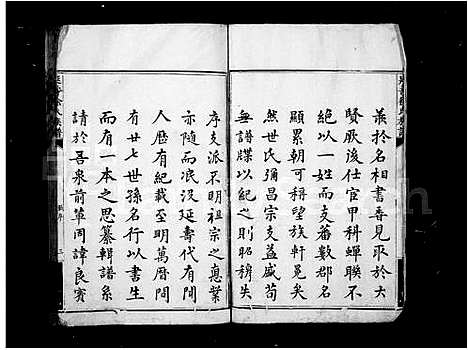 蕞於名相書香見取於大
賢厥後仕宦甲科蟬聯不
絕以一姓而支蕃數郡名
顯累朝可稱望族軒冕矣
然世氏彌昌宗支益盛苟
無譜牒以紀之則昭穆失
序支派不明祖宗之惠業
亦隨而泯沒延壽代有聞
人歷有紀載至明萬曆間
有廿七世孫名行以書生
而有一本之思纂輯譜系
請於吾泉前輩周諱良賓